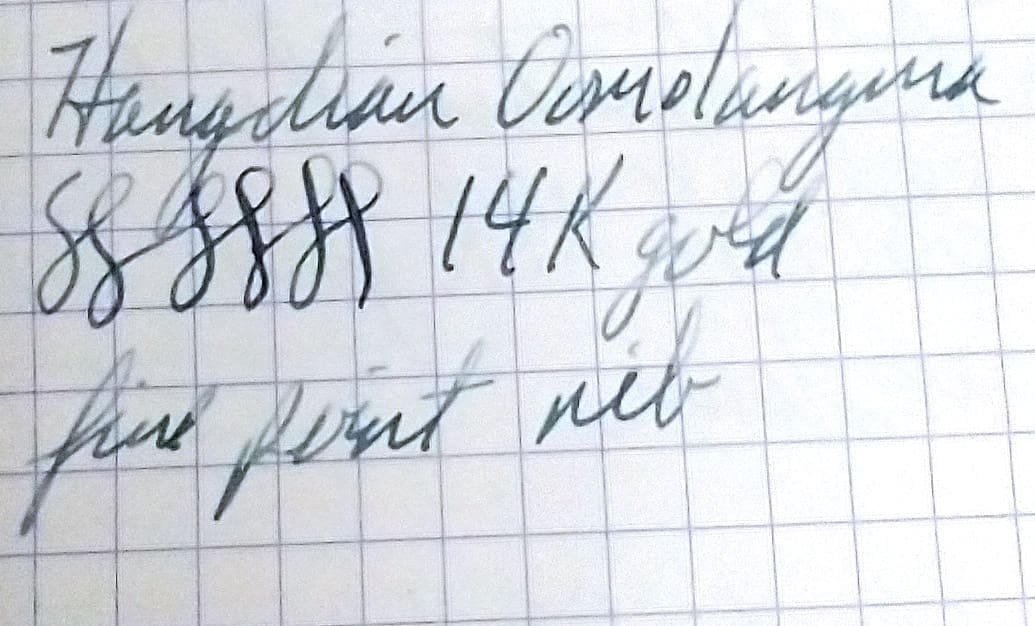 Hongdian Qomolangma
14K gold
fine point nib